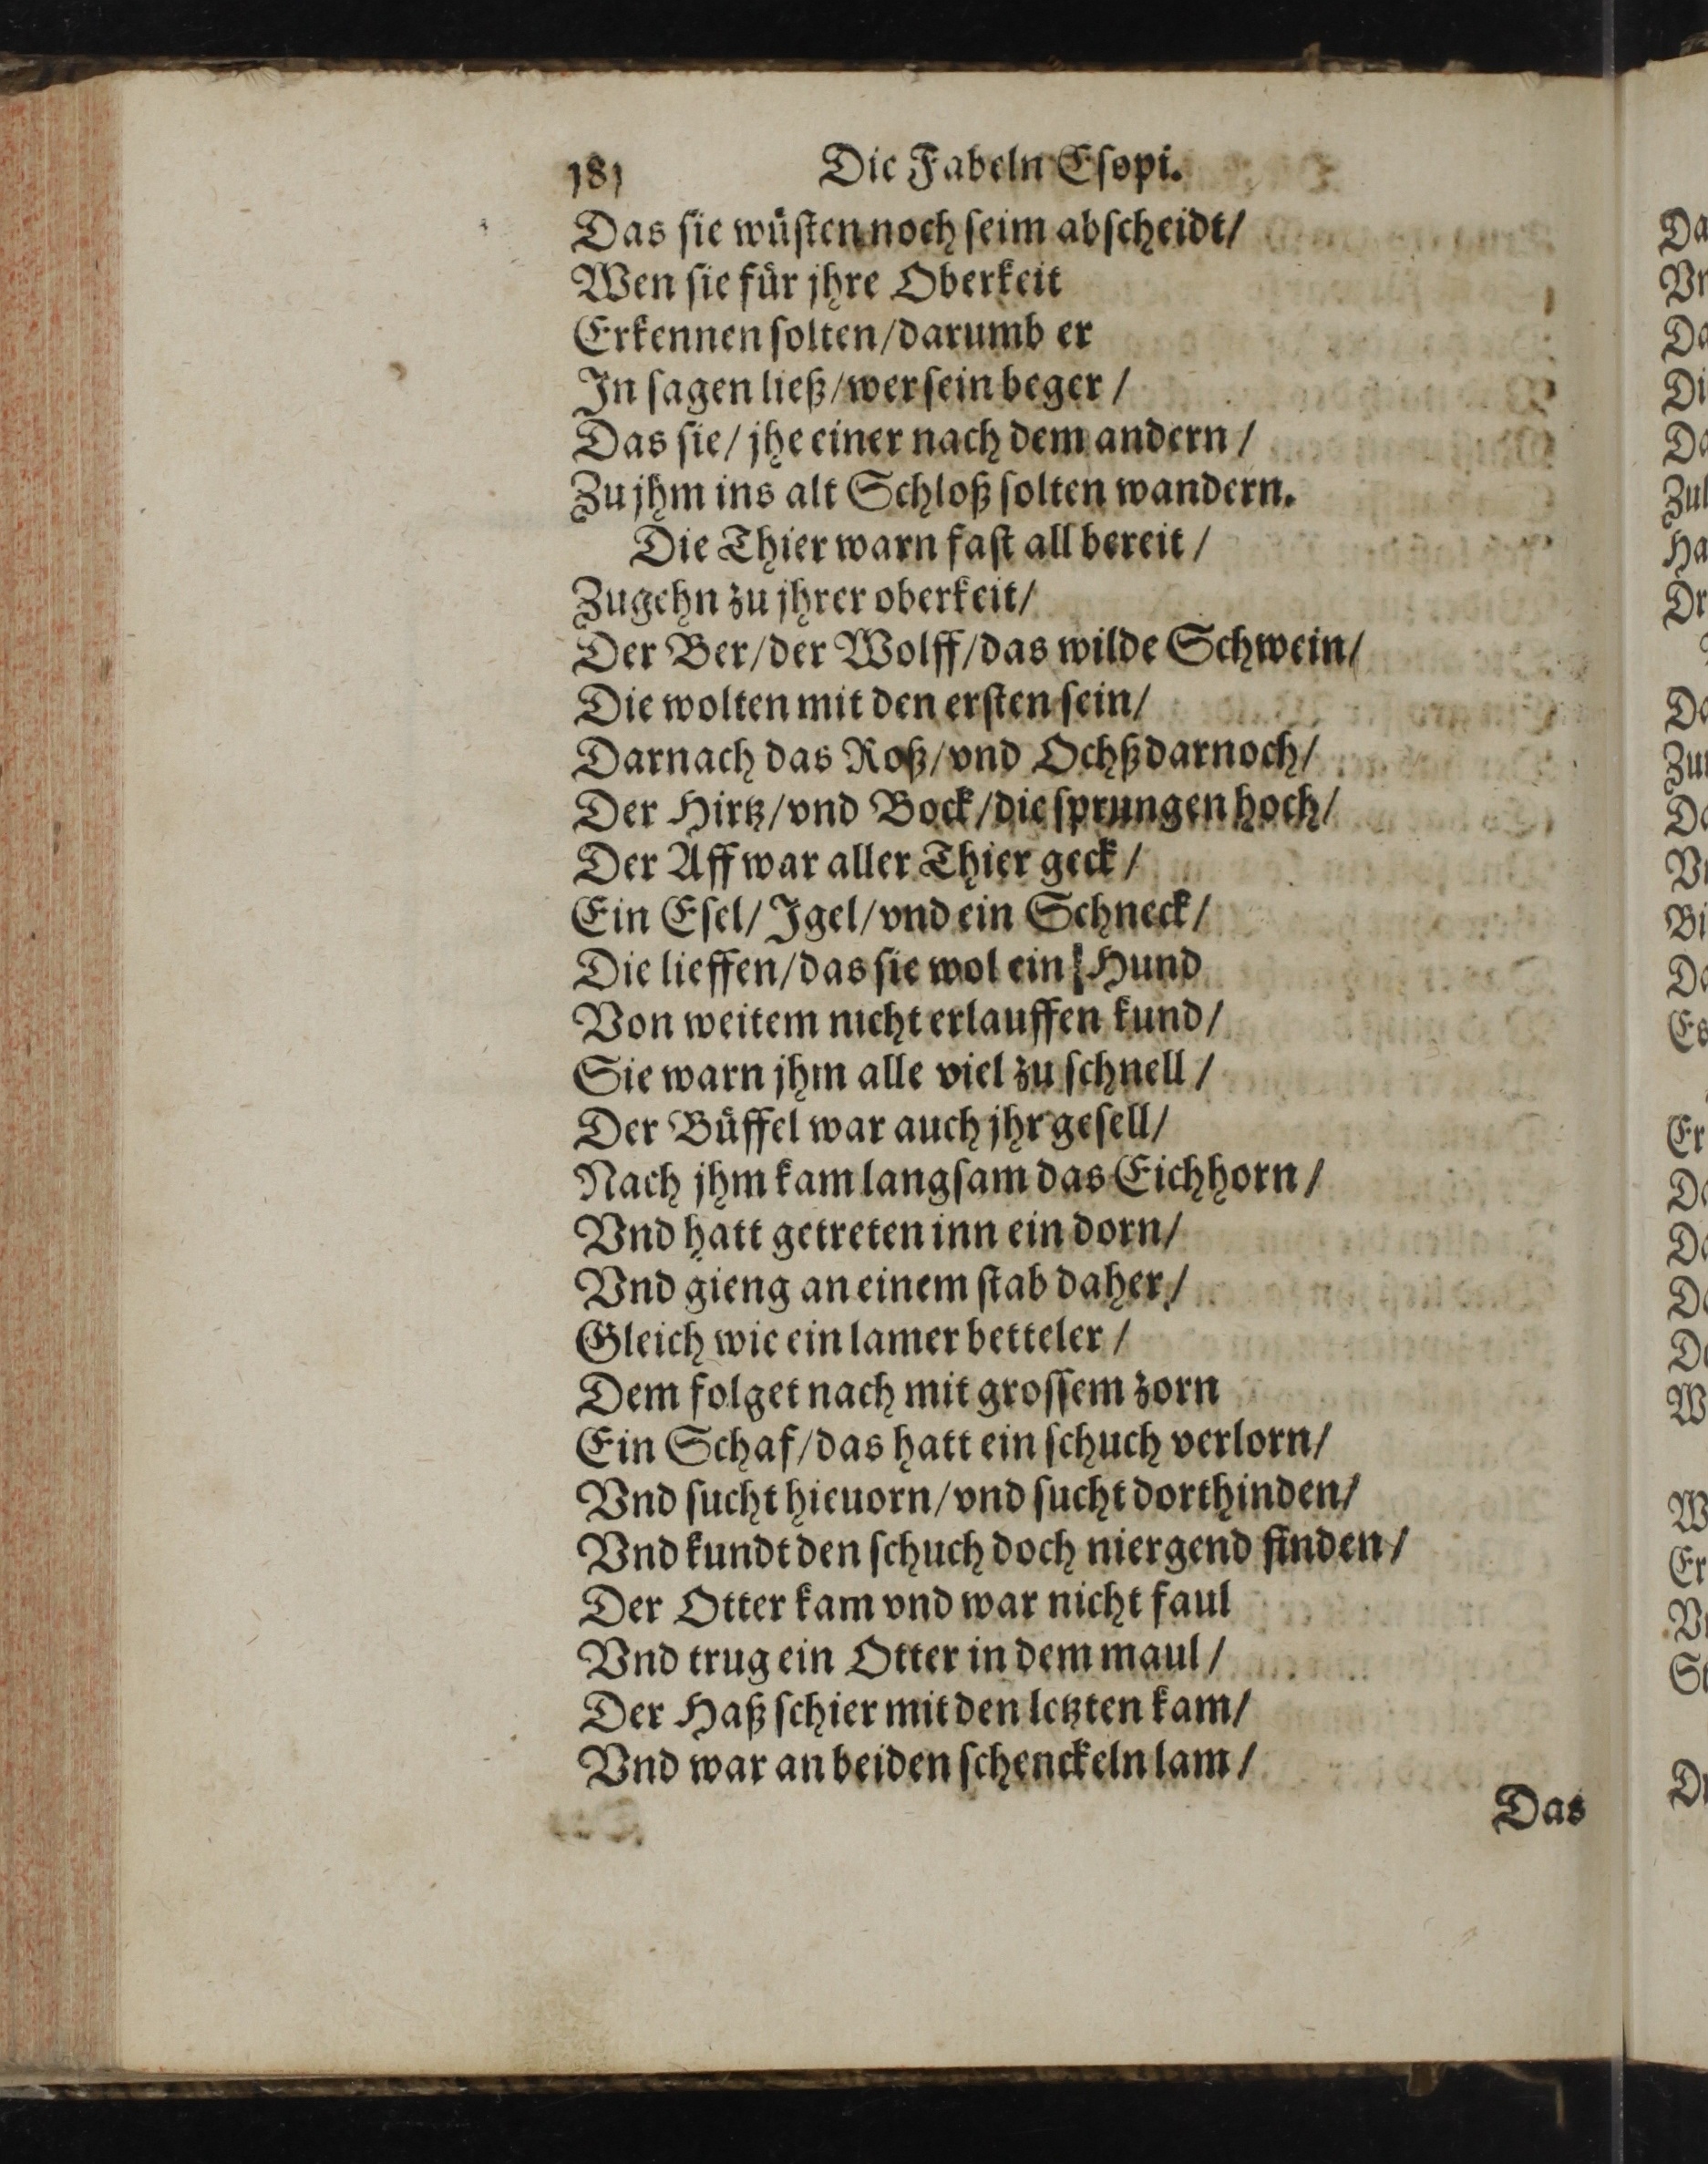 181 Die Fabeln Esopi.
Das sie wuͤsten noch seim abscheidt/
Wen sie fuͤr jhre Oberkeit
Erkennen solten/darumb er
In sagen ließ/wer sein beger /
Das sie/ jhe einer nach dem andern /
Zu jhm ins alt Schloß solten wandern.
Die Thier warn fast all bereit /
Zugehn zu jhrer oberkeit/
Der Ber/der Wolff/das wilde Schwein/
Die wolten mit den ersten sein/
Darnach das Roß/vnd Ochß darnoch/
Der Hirtz/vnd Bock/die sprungen hoch/
Der Aff war aller Thier geck /
Ein Esel/ Igel/vnd ein Schneck/
Die lieffen/das sie wol ein Hund
Von weitem nicht erlauffen kund/
Sie warn jhm alle viel zu schnell /
Der Buͤffel war auch jhr gesell/
Nach jhm kam langsam das Eichhorn /
Vnd hatt getreten inn ein dorn/
Vnd gieng an einem stab daher/
Gleich wie ein lamer betteler /
Dem folget nach mit grossem zorn
Ein Schaf/das hatt ein schuch verlorn/
Vnd sucht hieuorn/vnd sucht dorthinden/
Vnd kundt den schuch doch niergend finden/
Der Otter kam vnd war nicht faul
Vnd trug ein Otter in dem maul /
Der Haß schier mit den letzten kam/
Vnd war an beiden schenckeln lam /
Das